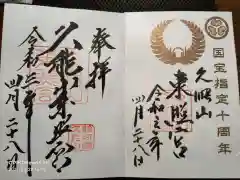 奉拝
久能山東照宮
令和三年
四月二十八
国宝指定十周年
久能山
東照宮
令和三年
四月二十八日